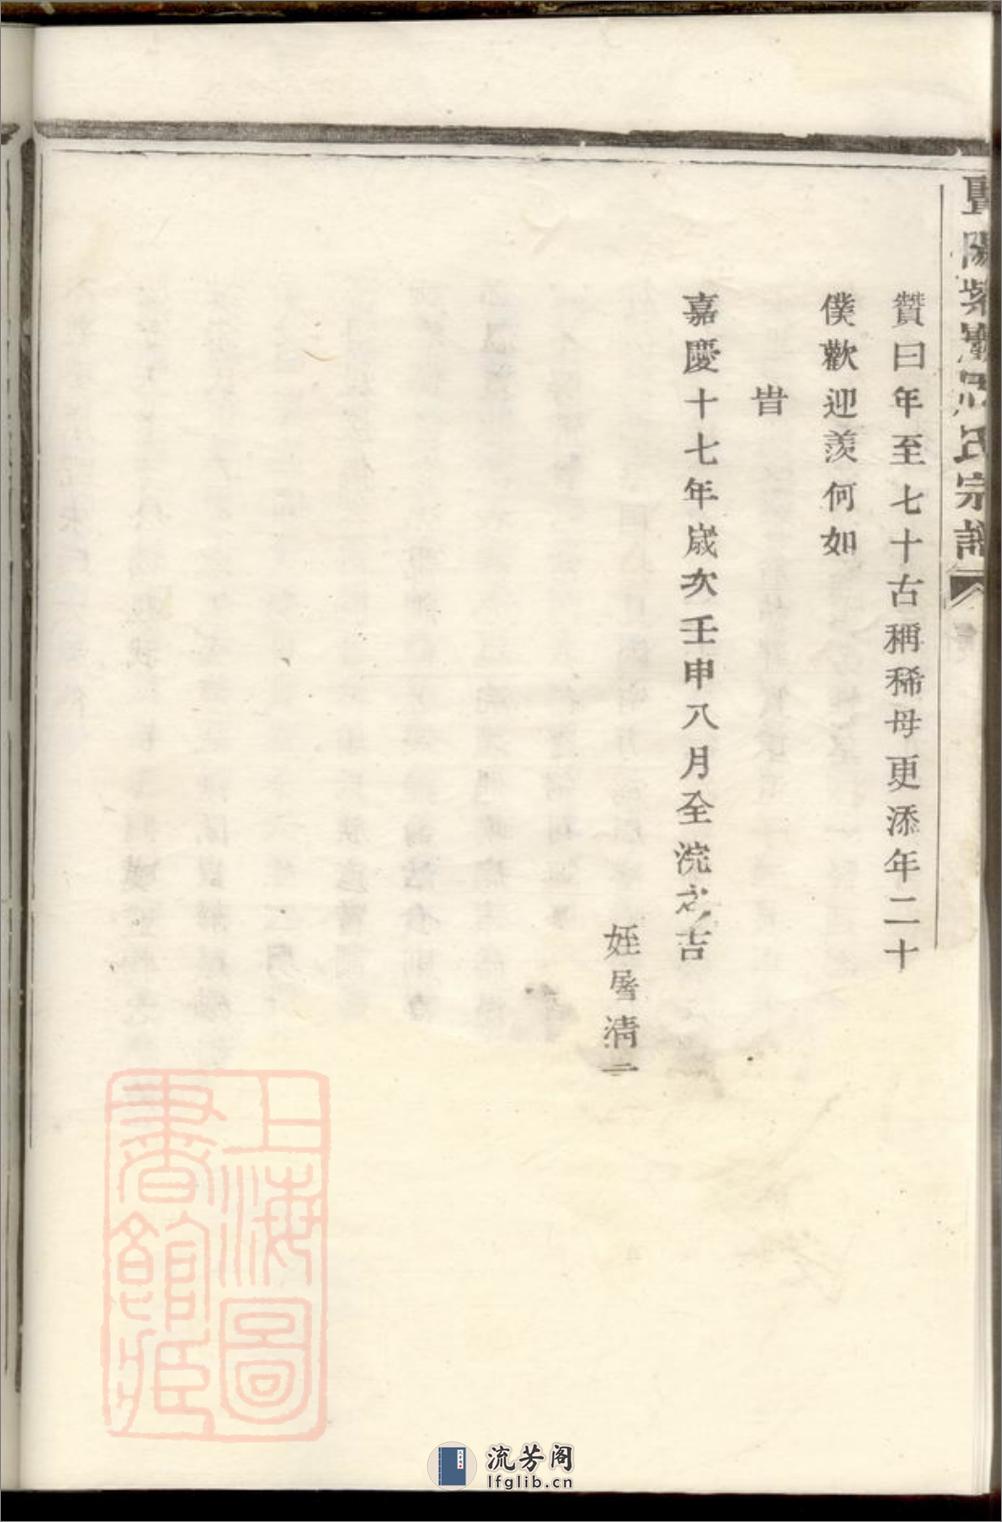 贊曰年至七十古稱稀母更添年二十
僕歡迎羨何如
旹
嘉慶十七年歲次壬申八月全浣之吉
姪屠清
暨陽紫巖 氏宗譜
上海圖書館藏
流芳阁
lfglib.cn